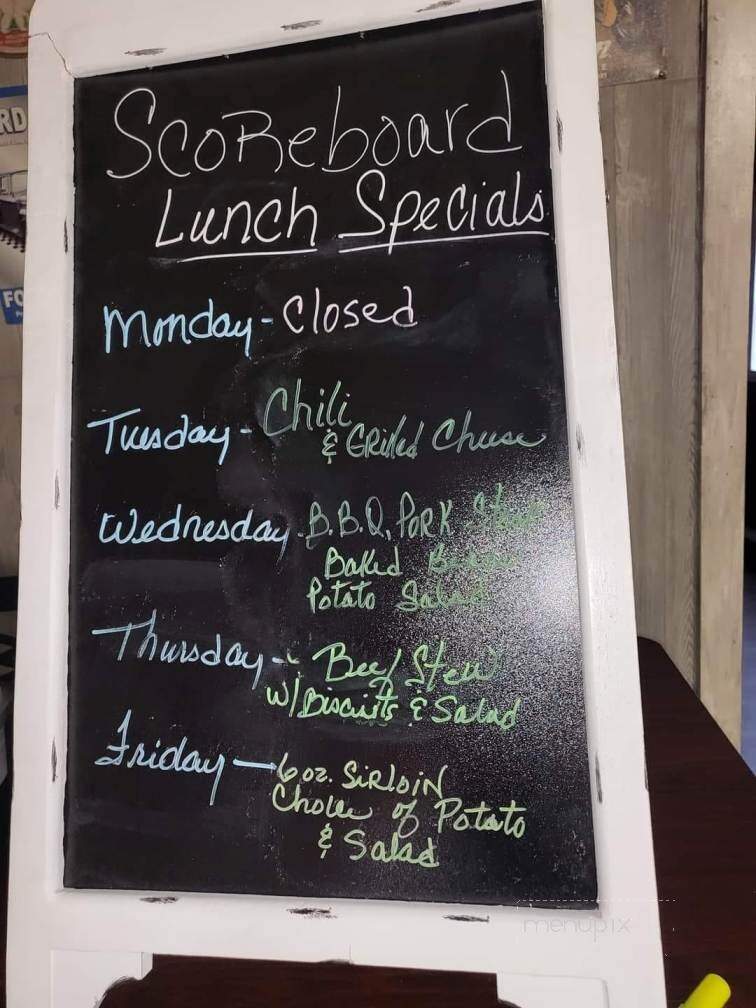 ScoReboard
Lunch Specials
Monday - Closed
Tuesday - Chili
& GRilled Cheese
Wednesday - B.B.Q. PoRK Steak
Baked Beans
Potato Salad
Thursday - Beef Stew
w/ Biscuits & Salad
Friday — 6 oz. SiRloiN
Choice of Potato
& Salad
RD
FO
menupix